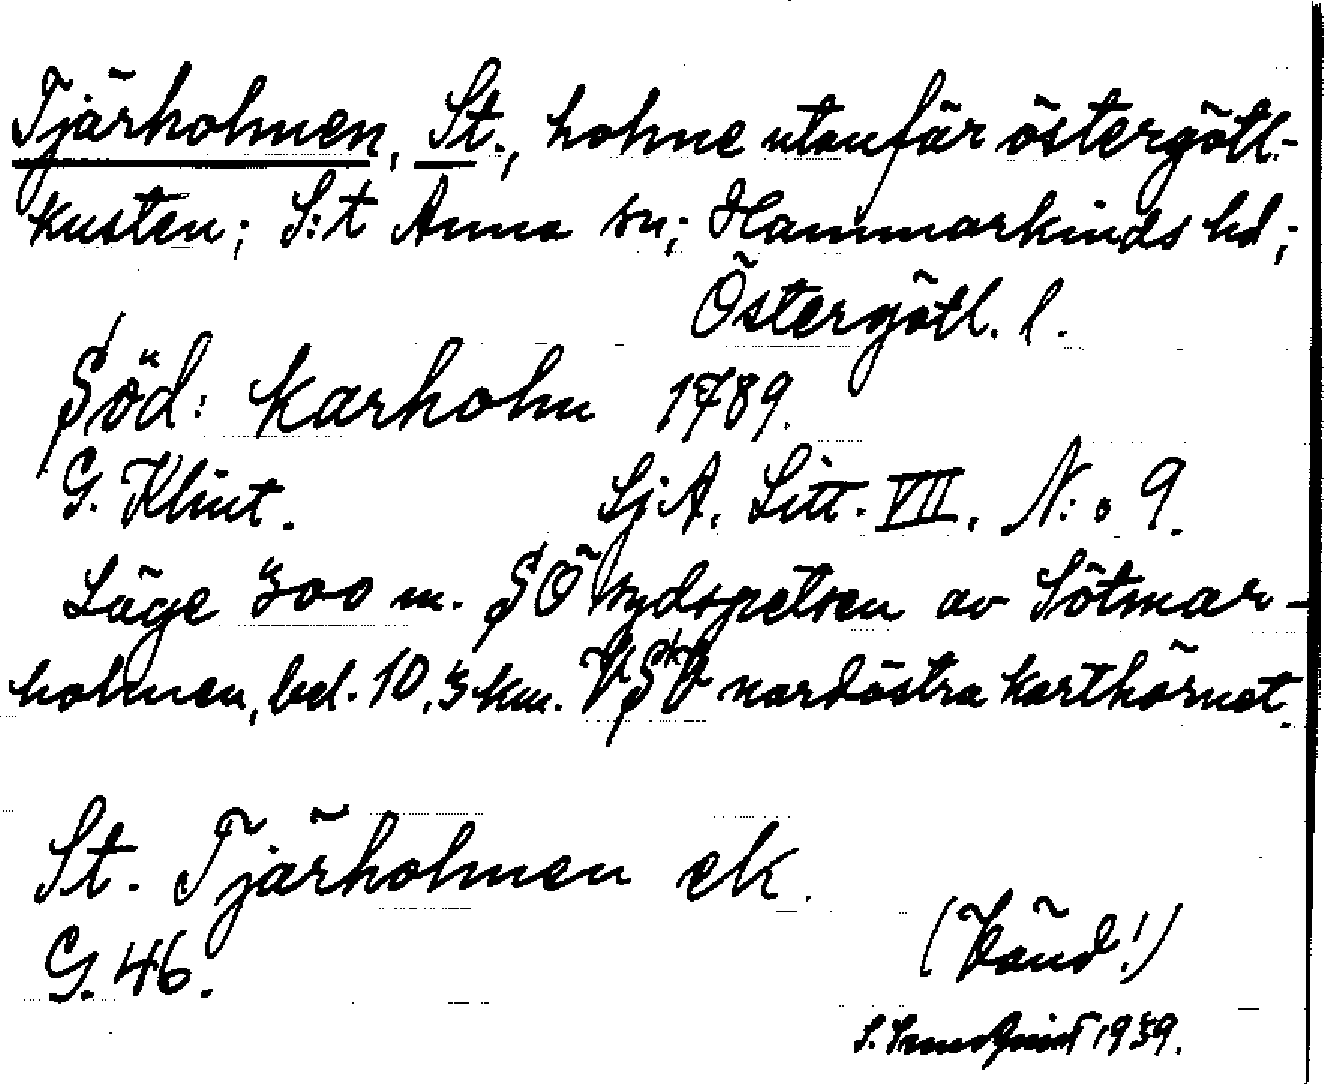 Tjärholmen, St., holme utanför östergötl-
kusten; S:t Anna sn; Hammarkinds hd;
Östergötl. l.
Söd: Karholm 1789.
G. Klint. Sj.A. Litt. VII. N:o 9.
Läge 300 m. SÖ sydspetsen av Sötmar-
holmen, bel. 10,3 km. VSV nordöstra karthörnet.
St. Tjärholmen ek.
G. 46.
(Vänd!)
S. Sundquist 1939.